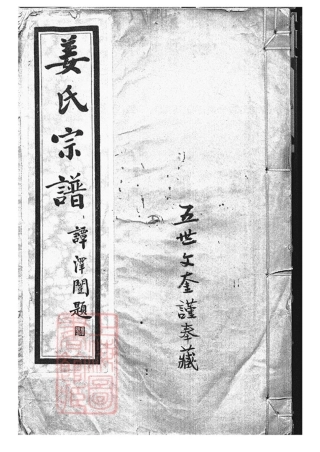 姜氏宗譜
譚澤闓題
五世文奎謹奉藏